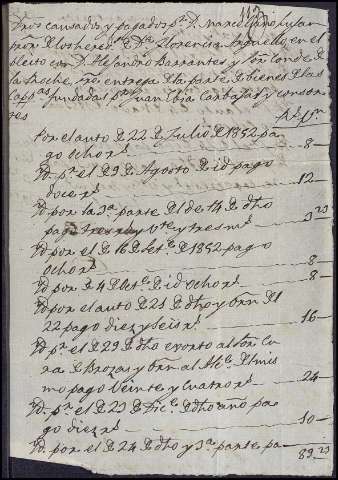 Dros causados y pagados pr. D. Marceliano
de los hered. de Dª Florencia Arguello en el
pleito con D. Alejandro Barrantes y Sor. Conde de
la Oeste, sre. entrega de la parte de bienes de las
Cap.as fundadas pr. Juan Carbajal y consor
tes
Rs. Mrs.
Por el auto de 22 de Julio de 1852 pa
go ocho rs. 8
Yd. pr. el de 9 de Agosto de id. pago
doce rs. 12
Yd. por la 3ª parte del de 14 de dho
pago tres rs. y vte. y tres ms. 3 23
Yd. por el de 16 de Set.e de 1852 pago
ocho rs. 8
Yd. por de 4 de de id. ocho rs. 8
Yd. por el auto de 21 de dho y orn. del
22 pago diez y seis rs. 16
Yd. pr. el de 29 de dho exorto al Sor. Cu
ra de Brozas y orn. al Alc.e del mis
mo pago veinte y cuatro rs. 24
Yd. pr. el de 23 de Dic.e de dho año pa
go diez rs. 10
Yd. por el de 24 de dho y 3ª parte pa
89 23